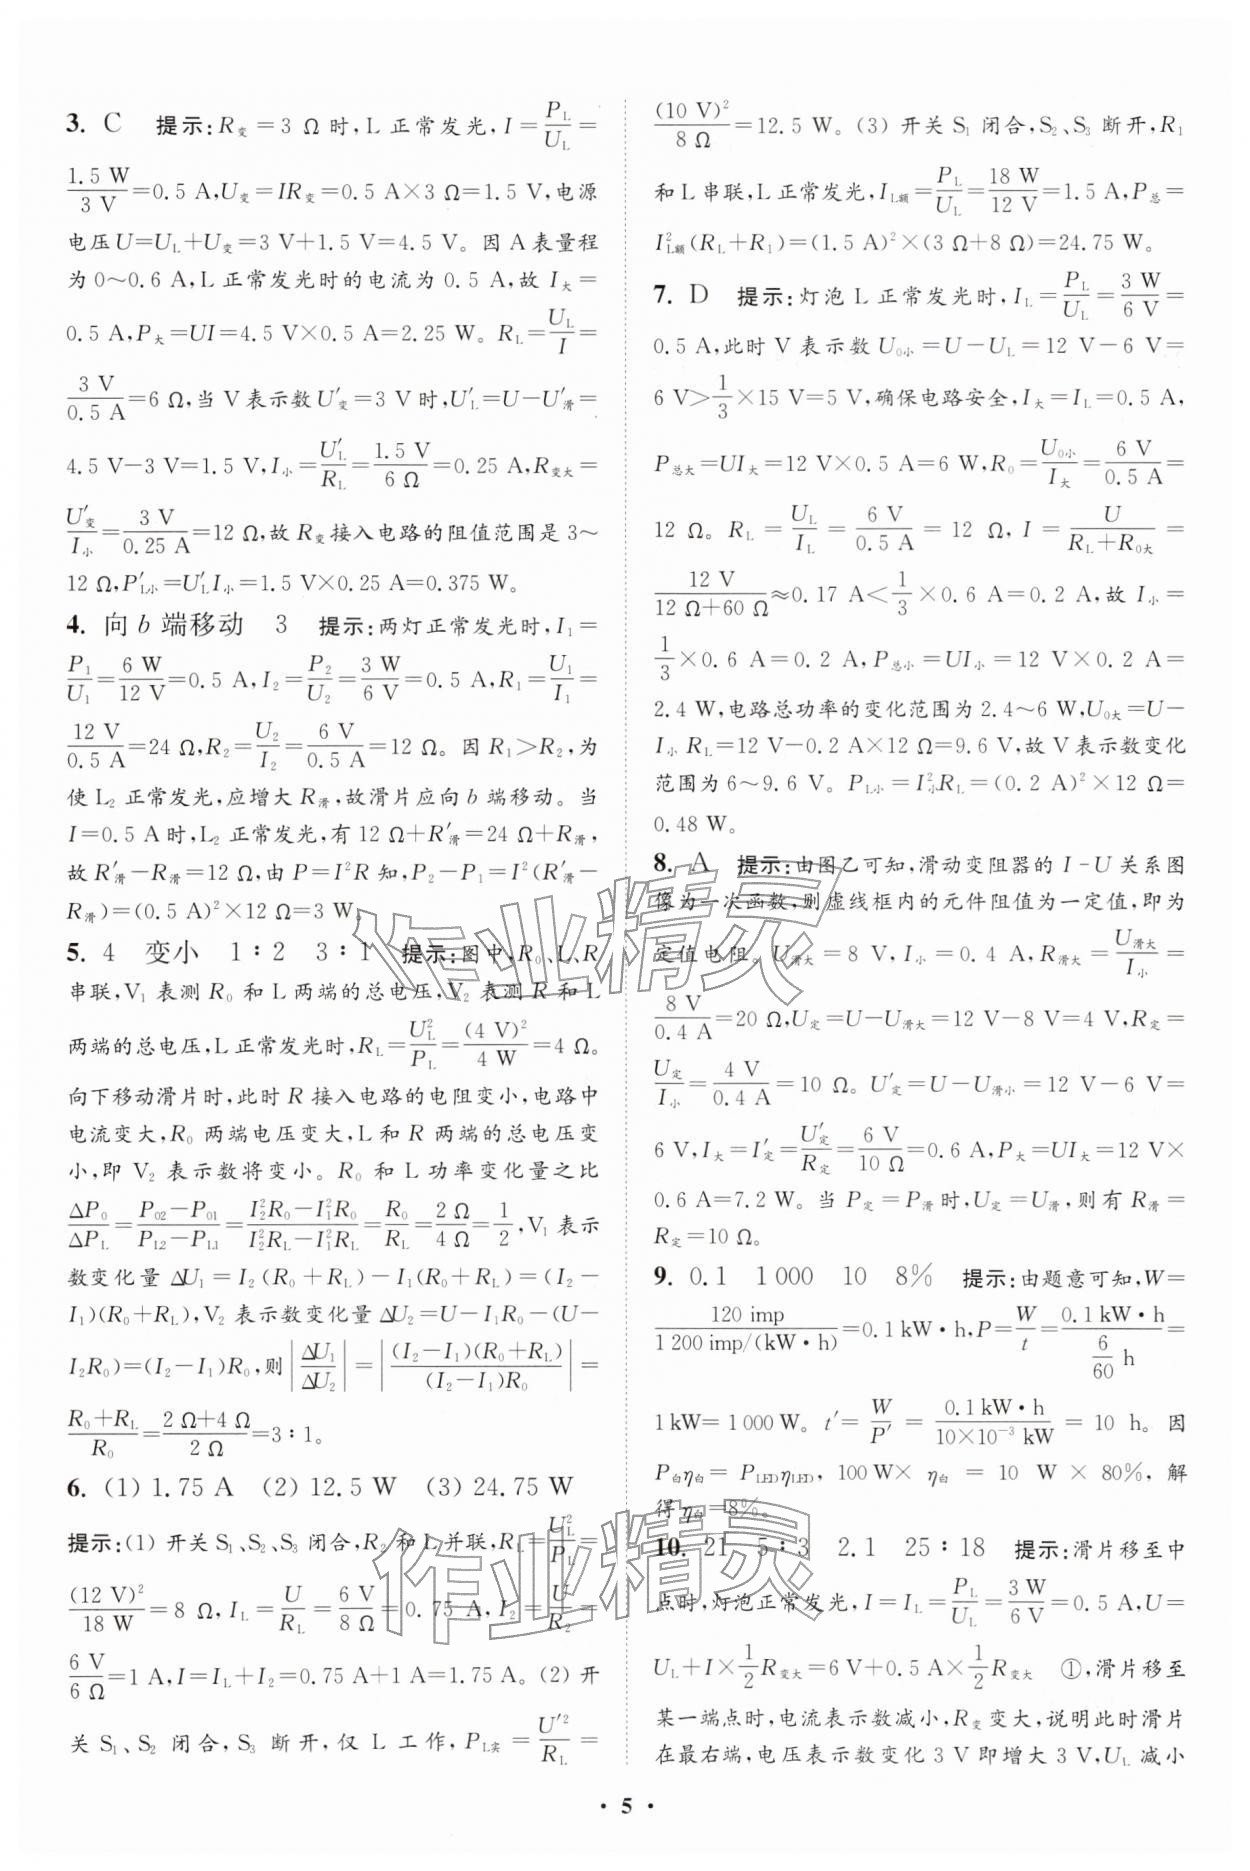 3. C 提示:R变=3 Ω时,L正常发光,I=P_L/U_L=
1.5 W/3 V=0.5 A,U变=IR变=0.5 A×3 Ω=1.5 V,电源
电压U=U_L+U变=3 V+1.5 V=4.5 V。因A表量程
为0~0.6 A,L正常发光时的电流为0.5 A,故I大=
0.5 A,P大=UI=4.5 V×0.5 A=2.25 W。R_L=U_L/I=
3 V/0.5 A=6 Ω,当V表示数U′变=3 V时,U′_L=U-U′滑=
4.5 V-3 V=1.5 V,I小=U′_L/R_L=1.5 V/6 Ω=0.25 A,R变大=
U′变/I小=3 V/0.25 A=12 Ω,故R变接入电路的阻值范围是3~
12 Ω,P′L小=U′_L I小=1.5 V×0.25 A=0.375 W。
4. 向b端移动 3 提示:两灯正常发光时,I₁=
P₁/U₁=6 W/12 V=0.5 A,I₂=P₂/U₂=3 W/6 V=0.5 A,R₁=U₁/I₁=
12 V/0.5 A=24 Ω,R₂=U₂/I₂=6 V/0.5 A=12 Ω。因R₁>R₂,为
使L₂正常发光,应增大R滑,故滑片应向b端移动。当
I=0.5 A时,L₂正常发光,有12 Ω+R′滑=24 Ω+R滑,
故R′滑-R滑=12 Ω,由P=I²R知,P₂-P₁=I²(R′滑-
R滑)=(0.5 A)²×12 Ω=3 W。
5. 4 变小 1∶2 3∶1 提示:图中,R₀、L、R
串联,V₁表测R₀和L两端的总电压,V₂表测R和L
两端的总电压,L正常发光时,R_L=U_L²/P_L=(4 V)²/4 W=4 Ω。
向下移动滑片时,此时R接入电路的电阻变小,电路中
电流变大,R₀两端电压变大,L和R两端的总电压变
小,即V₂表示数将变小。R₀和L功率变化量之比
ΔP₀/ΔP_L=(P₀₂-P₀₁)/(P_L2-P_L1)=(I₂²R₀-I₁²R₀)/(I₂²R_L-I₁²R_L)=R₀/R_L=2 Ω/4 Ω=1/2,V₁表示
数变化量ΔU₁=I₂(R₀+R_L)-I₁(R₀+R_L)=(I₂-
I₁)(R₀+R_L),V₂表示数变化量ΔU₂=U-I₁R₀-(U-
I₂R₀)=(I₂-I₁)R₀,则|ΔU₁/ΔU₂|=|(I₂-I₁)(R₀+R_L)/(I₂-I₁)R₀|=
(R₀+R_L)/R₀=(2 Ω+4 Ω)/2 Ω=3∶1。
6. (1) 1.75 A (2) 12.5 W (3) 24.75 W
提示:(1) 开关S₁、S₂、S₃闭合,R₂和L并联,R_L=U_L²/P_L=
(12 V)²/18 W=8 Ω,I_L=U/R_L=6 V/8 Ω=0.75 A,I₂=U/R₂=
6 V/6 Ω=1 A,I=I_L+I₂=0.75 A+1 A=1.75 A。(2) 开
关S₁、S₂闭合,S₃断开,仅L工作,P_L实=U′²/R_L=
(10 V)²/8 Ω=12.5 W。(3) 开关S₁闭合,S₂、S₃断开,R₁
和L串联,L正常发光,I_L额=P_L/U_L=18 W/12 V=1.5 A,P总=
I²_L额(R_L+R₁)=(1.5 A)²×(3 Ω+8 Ω)=24.75 W。
7. D 提示:灯泡L正常发光时,I_L=P_L/U_L=3 W/6 V=
0.5 A,此时V表示数U₀小=U-U_L=12 V-6 V=
6 V>1/3×15 V=5 V,确保电路安全,I大=I_L=0.5 A,
P总大=UI大=12 V×0.5 A=6 W,R₀=U₀小/I大=6 V/0.5 A=
12 Ω。R_L=U_L/I_L=6 V/0.5 A=12 Ω,I=U/(R_L+R₀大)=
12 V/(12 Ω+60 Ω)≈0.17 A<1/3×0.6 A=0.2 A,故I小=
1/3×0.6 A=0.2 A,P总小=UI小=12 V×0.2 A=
2.4 W,电路总功率的变化范围为2.4~6 W,U₀大=U-
I小R_L=12 V-0.2 A×12 Ω=9.6 V,故V表示数变化
范围为6~9.6 V。P_L小=I²小R_L=(0.2 A)²×12 Ω=
0.48 W。
8. A 提示:由图乙可知,滑动变阻器的I-U关系图
像为一次函数,则虚线框内的元件阻值为一定值,即为
定值电阻。U滑大=8 V,I小=0.4 A,R滑大=U滑大/I小=
8 V/0.4 A=20 Ω,U定=U-U滑大=12 V-8 V=4 V,R定=
U定/I小=4 V/0.4 A=10 Ω。U′定=U-U滑小=12 V-6 V=
6 V,I大=I′定=U′定/R定=6 V/10 Ω=0.6 A,P大=UI大=12 V×
0.6 A=7.2 W。当P定=P滑时,U定=U滑,则有R滑=
R定=10 Ω。
9. 0.1 1 000 10 8% 提示:由题意可知,W=
120 imp/1 200 imp/(kW·h)=0.1 kW·h,P=W/t=0.1 kW·h/(6/60 h)=
1 kW=1 000 W。t′=W/P′=0.1 kW·h/(10×10⁻³ kW)=10 h。因
P白η白=P_LEDη_LED,100 W×η白=10 W×80%,解
得η白=8%。
10. 21 5∶3 2.1 25∶18 提示:滑片移至中
点时,灯泡正常发光,I=I_L=P_L/U_L=3 W/6 V=0.5 A,U=
U_L+I×1/2R变大=6 V+0.5 A×1/2R变大 ①,滑片移至
某一端点时,电流表示数减小,R变变大,说明此时滑片
在最右端,电压表示数变化3 V即增大3 V,U_L减小
· 5 ·
作业精灵
作业精灵